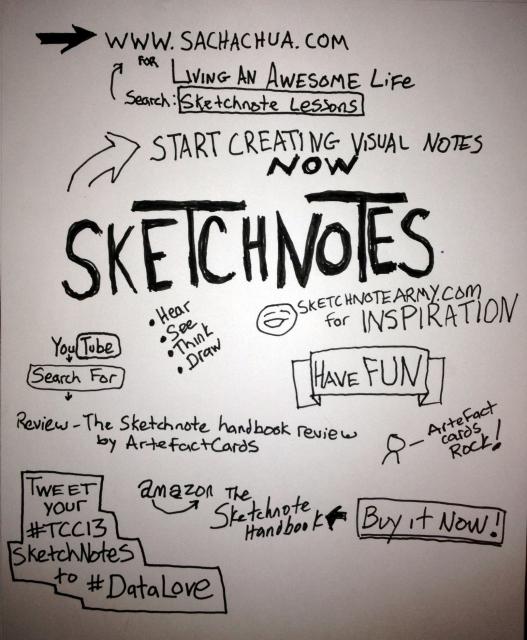 WWW.SACHACHUA.COM
FOR LIVING AN AWESOME LIFE
Search: Sketchnote Lessons
START CREATING VISUAL NOTES
NOW
SKETCHNOTES
• Hear
• See
• Think
• Draw
SKETCHNOTEARMY.COM
for INSPIRATION
YouTube
Search For
HAVE FUN
Review - The Sketchnote handbook review
by ArtefactCards
ArteFact
cards
Rock!
TWEET
your
#TCC13
SketchNotes
to #DataLove
amazon The
Sketchnote
Handbook
Buy it Now!